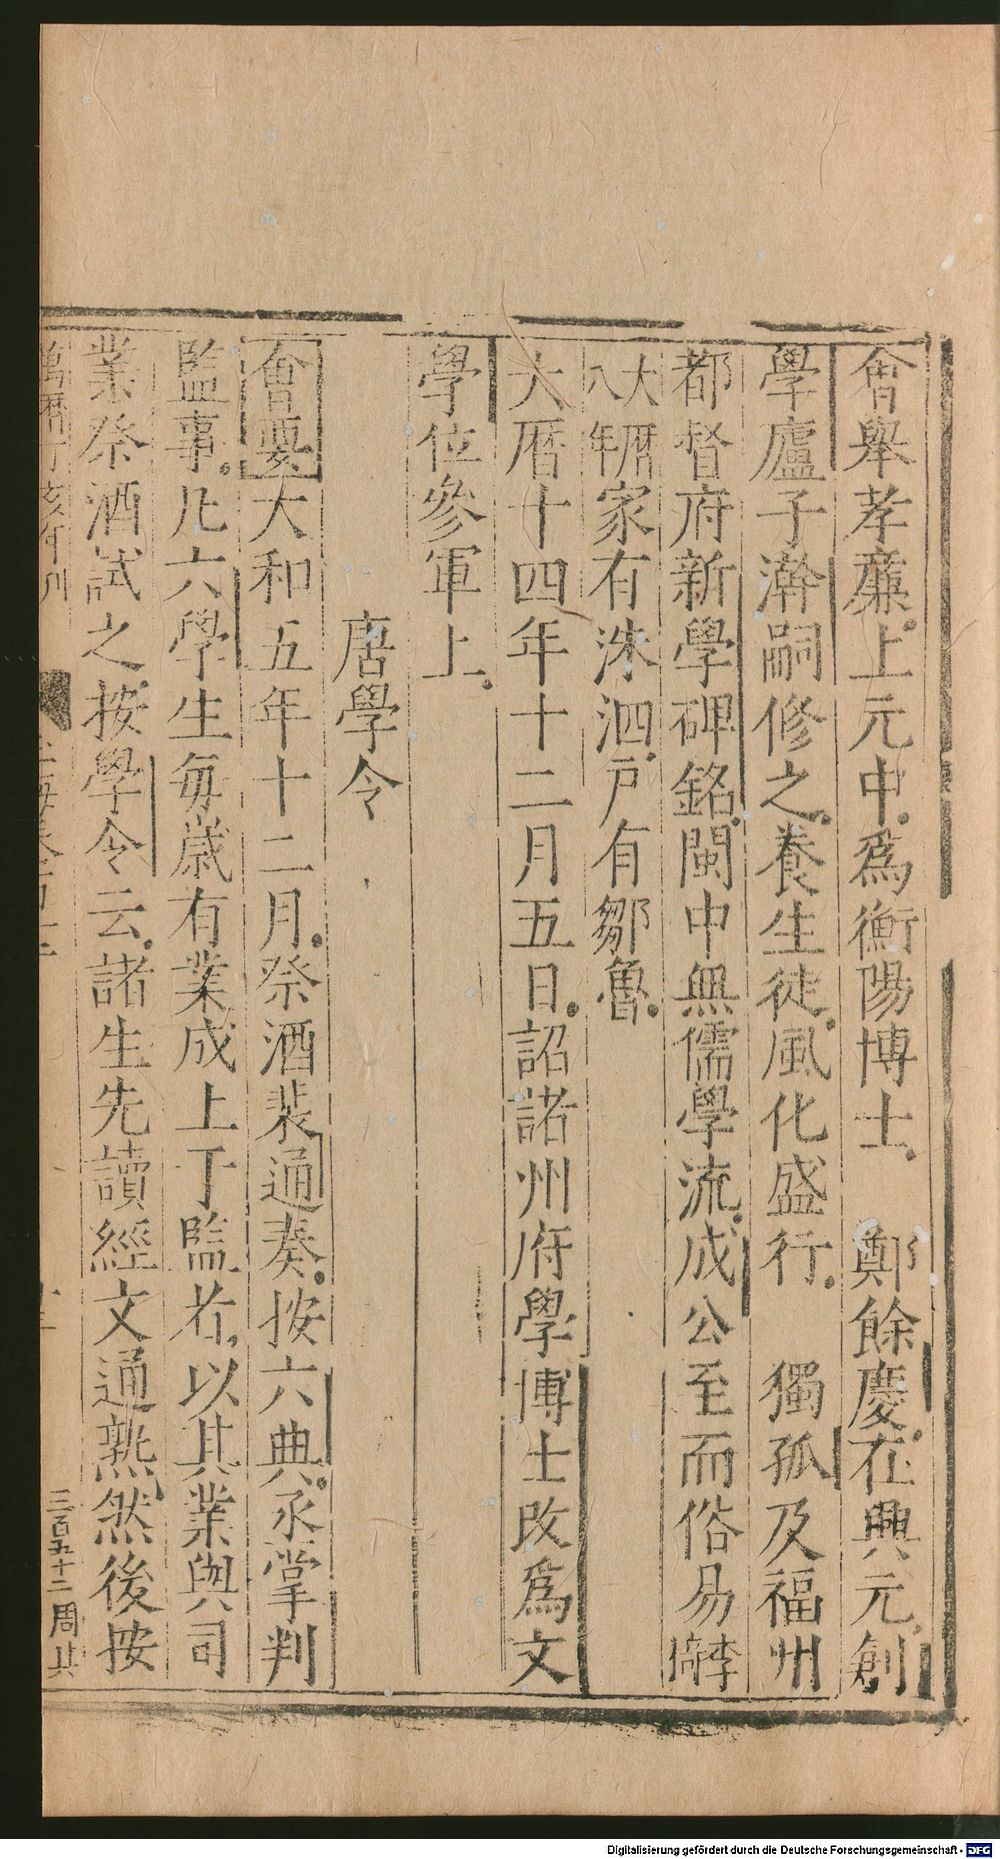 會舉孝廉上元中爲衡陽博士 鄭餘慶在興元創
學廬子澣嗣修之養生徒風化盛行 獨孤及福州
都督府新學碑銘閩中無儒學流成公至而俗易李
大曆
八年家有洙泗戸有鄒魯
大曆十四年十二月五日詔諸州府學博士改爲文
學位參軍上
唐學令
會要大和五年十二月祭酒裴通奏按六典丞掌判
監事凡六學生每歲有業成上于監者以其業與司
業祭酒試之按學令云諸生先讀經文通熟然後按
萬曆丁亥年刊
三百五十二周其
Digitalisierung gefördert durch die Deutsche Forschungsgemeinschaft - DFG